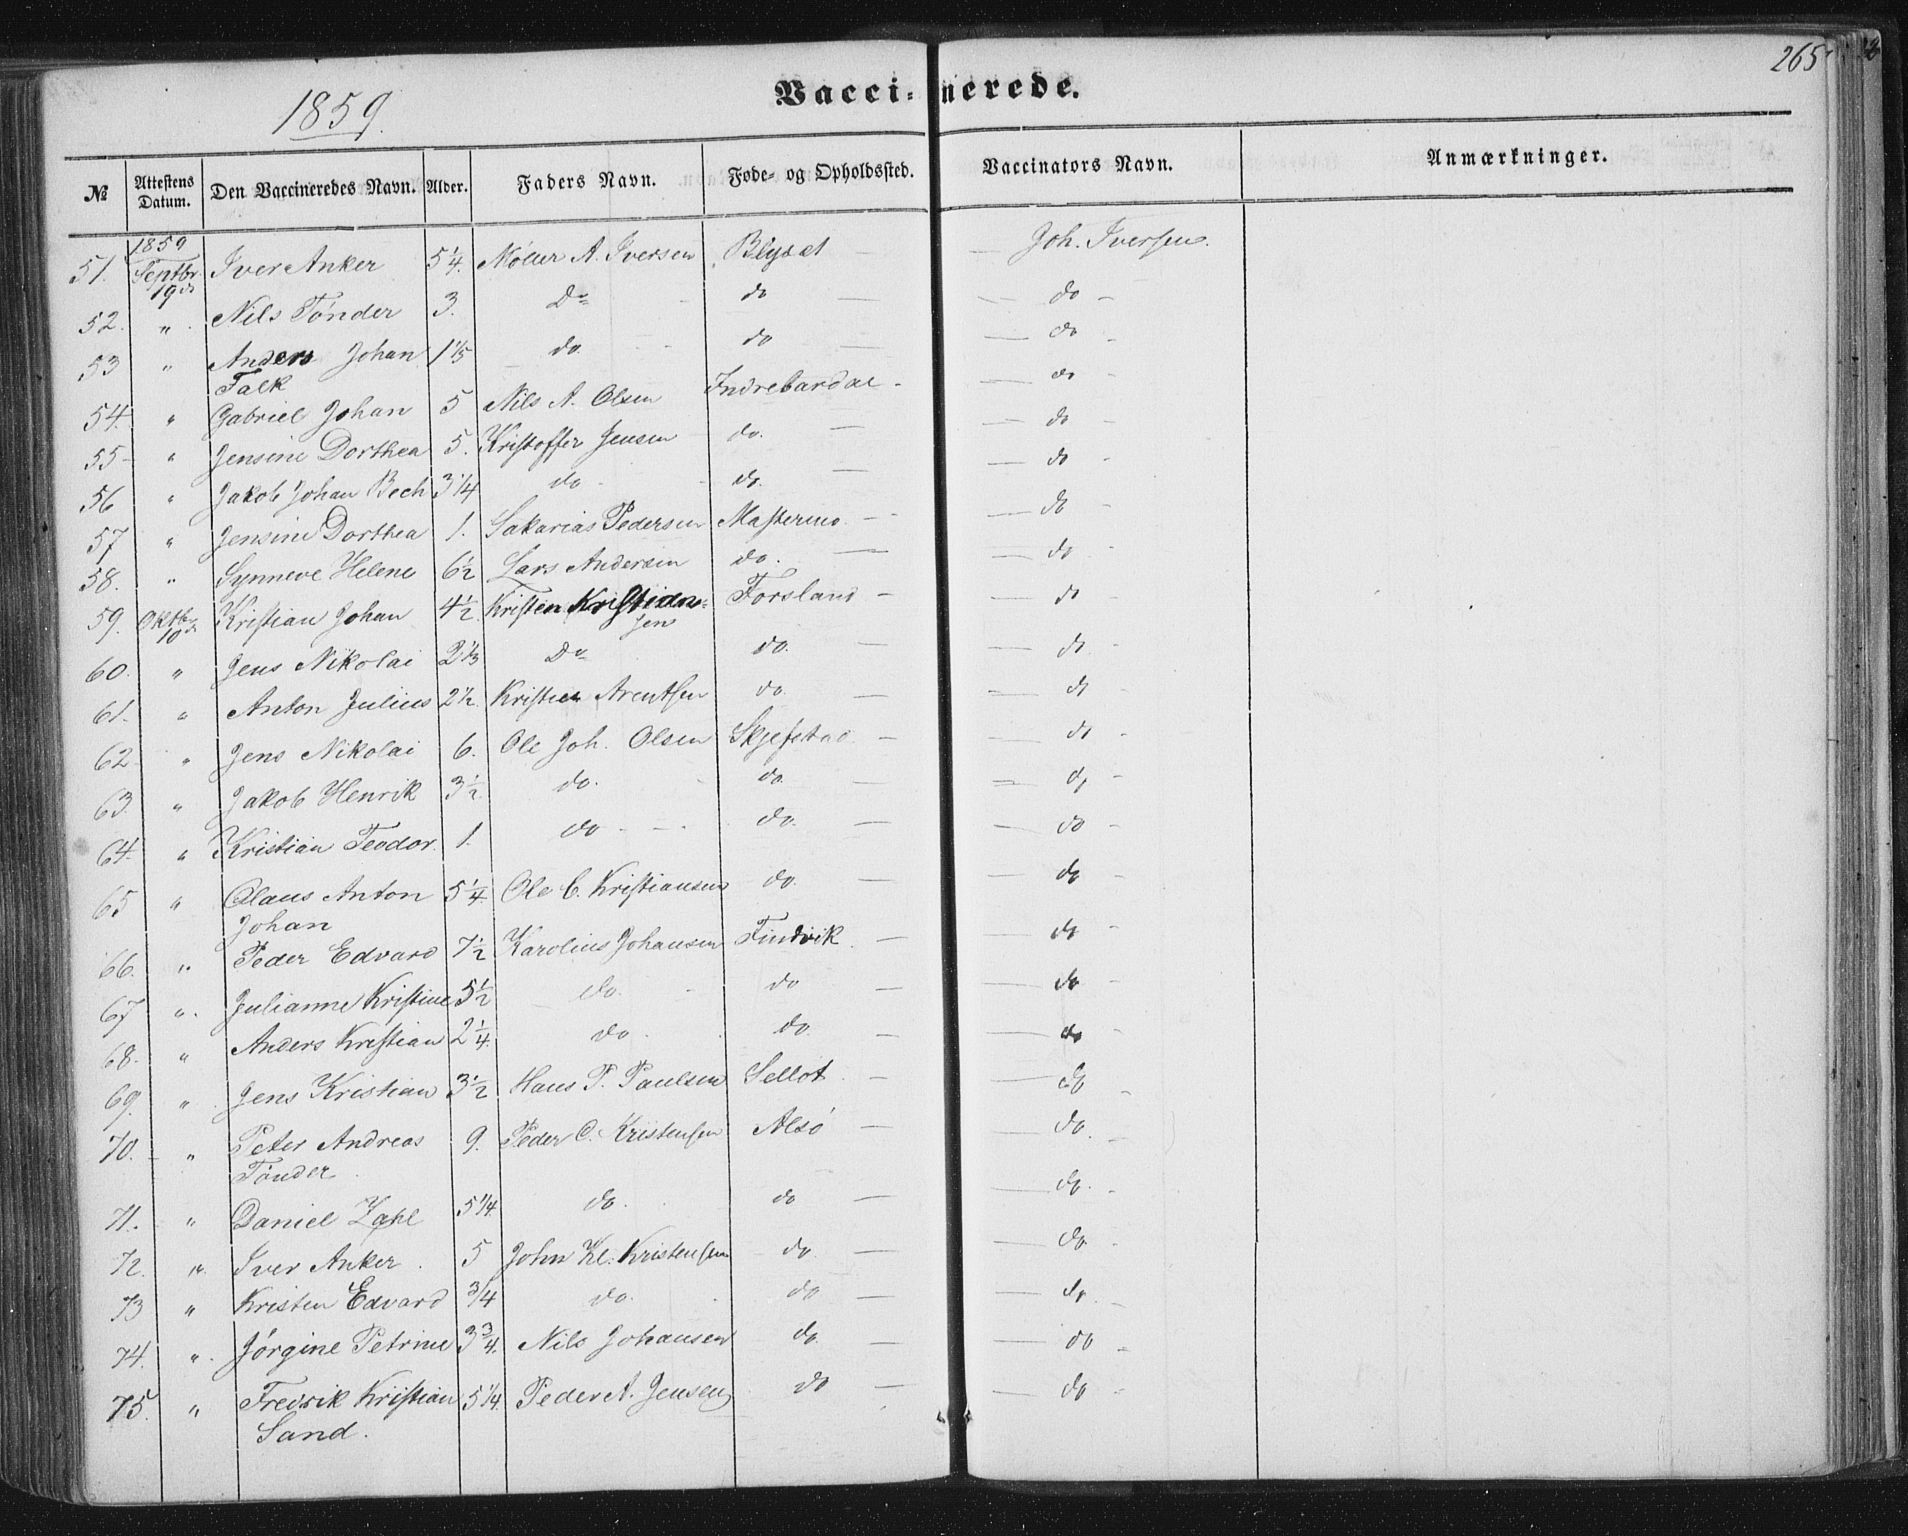 265
1859.
Vacci-nerede.
№ Attestens Datum. Den Vaccineredes Navn. Alder. Faders Navn. Føde- og Opholdssted. Vaccinators Navn. Anmærkninger.
1859
51. Septbr. 19de Iver Anker 5¼. A. Iversen — Joh. Iversen.
52. " Nils Tønder 3. Do do — do –
53 " Anders Johan 1⅕ do. do — do –
Falk
54. " Gabriel Johan 5 Nils A. Olsen Indrebardal – do –
55 " Jensine Dorthea 5. Kristoffer Jensen do. — do –
56 " Jakob Johan Bech 3¼ do do. — do –
57 " Jensine Dorthea 1. Sakarias Pedersen — do –
58. " Synneve Helene 6½ Lars Andersen do. — do –
59. Oktbr. 10de Kristian Johan 4½ Kristen Kristian= Forsland – do –
sen
60. " Jens Nikolai 2⅓ Do do. — do –
61. " Anton Julius 2½. Kristen Arentsen do. — do –
62 " Jens Nikolai 6. Ole Joh. Olsen Skjefstad – do –
63. " Jakob Henrik 3½. do. do. — do –
64. " Kristian Teodor. 1. do do. — do –
65 " Claus Anton 5¼. Ole C. Kristiansen do. — do –
Johan
66. " Peder Edvard 7½ Karolius Johansen Findvik. — do –
67 " Julianne Kristine 5½ do. do — do
68. " Anders Kristian 2¼. do. do. — do
69. " Jens Kristian 3½ Hans P. Paulsen Sellot. — do –
70. " Peter Andreas 9. Peder C. Kristensen Alsø — do. –
Tønder.
71. " Daniel Zahl 5¼. do. do — do. –
72. " Iver Anker. 5 John Kl. Kristensen do — do. –
73 " Kristen Edvard ¾ do. do — do. –
74. " Jørgine Petrine 3¾. Nils Johansen do. — do –
75. " Fredrik Kristian 5¼. Peder A. Jensen do — do –
Sand.